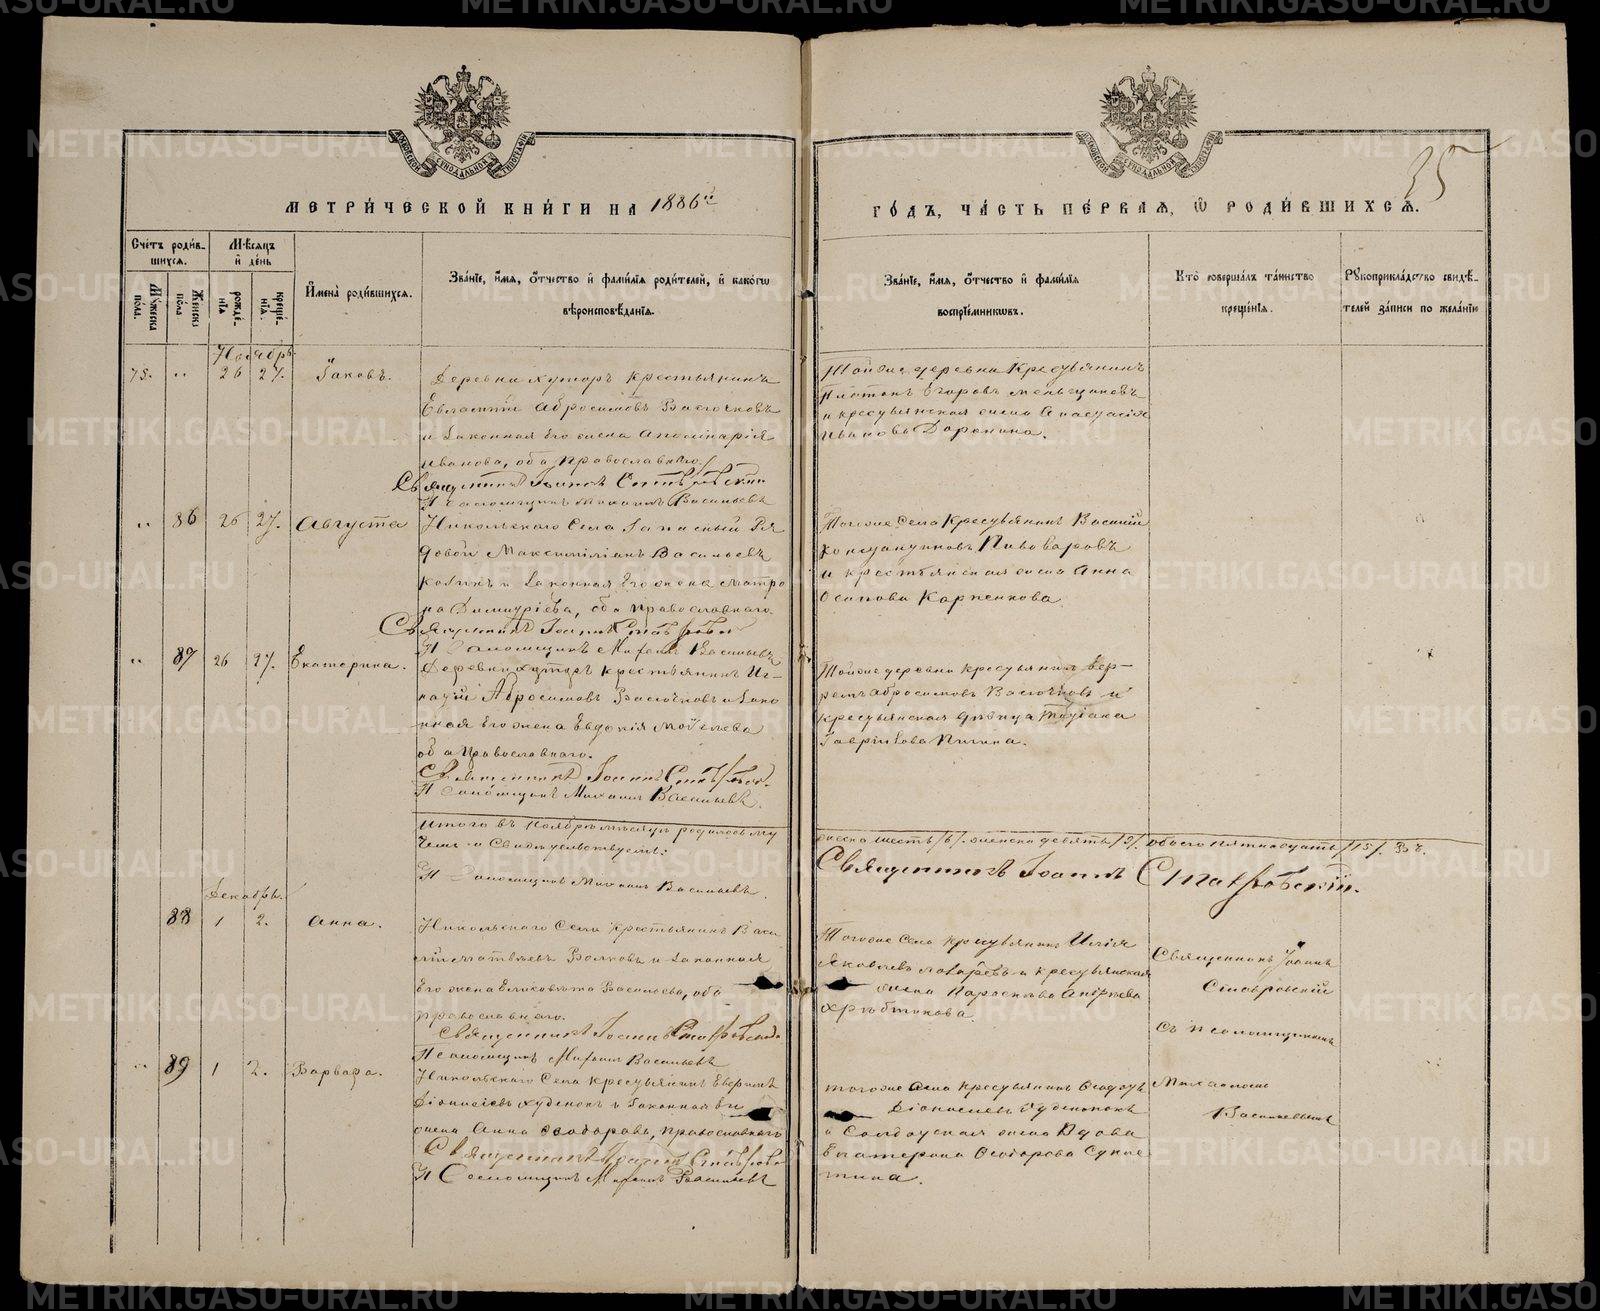 МЕТРИ́ЧЕСКОЙ КНИ́ГИ НА 1886й
ГО́ДЪ, ЧА́СТЬ ПЕ́РВАЯ, Ѿ РОДИ́ВШИХСЯ.
35
Сче́тъ роди́в-
шихся.
Мѣ́сяцъ
и҆ де́нь
Мꙋ́жеска по́ла.
Же́нска по́ла
рожде́-
нїѧ
креще́-
нїѧ.
И҆мена̀ роди́вшихся.
Зва́нїе, и҆́мя, ѻ҆́тчество и҆ фами́лїя роди́телей, и҆ како́гѡ
вѣроисповѣ́данїя.
Зва́нїе, и҆́мя, ѻ҆́тчество и҆ фами́лїя
воспрїе́мниковъ.
Кто̀ соверша́лъ та́инство
креще́нїя.
Рꙋкоприкла́дство свидѣ́-
телей за́писи по жела́нїю
Ноябрь.
75. „ 26 27. Іаковъ.
Деревни Хуторъ крестьянинъ
Евлампій Абросимовъ Васючковъ
и законная его жена Аполинарія
Иванова, оба православнаго.
Священникъ Іоаннъ Ставровскій
Псаломщикъ Михаилъ Васильевъ
Тойже деревни крестьянинъ
Платонъ Егоровъ
и крестьянская жена Анастасія
Иванова Доронина.
„ 86 26 27. Августа
Никольскаго Села Запасный Ря
довой Максимиліанъ Васильевъ
и законная его жена Матро
на Димитріева, оба православнаго.
Священникъ Іоаннъ Ставровскій
Псаломщикъ Михаилъ Васильевъ
Тогоже Села крестьянинъ Василій
Пивоваровъ
и крестьянская жена Анна
Осипова Карпенкова.
„ 87 26 27. Екатерина.
Деревни Хуторъ крестьянинъ Иг-
натій Абросимовъ Васючковъ и зако
нная его жена Евдокія Моисеева
оба православнаго.
Священникъ Іоаннъ Ставровскій
Псаломщикъ Михаилъ Васильевъ.
Тойже деревни крестьянинъ
Абросимовъ Васючковъ и
крестьянская дѣвица Татіана
Гаврилова
Итого въ Ноябрѣ мѣсяцѣ родилось му
жеска шесть /6/. женска девять /9/. обоего пятнадцать /15/. Въ
чемъ и Свидѣтельствуемъ:
Священникъ Іоаннъ Ставровскій.
Псаломщикъ Михаилъ Васильевъ.
Декабрь.
88 1 2. Анна.
Никольскаго Села крестьянинъ Васи
лій Матвѣевъ Волковъ и законная
его жена Елисавета Васильева, оба
православнаго.
Священникъ Іоаннъ Ставровскій
Псаломщикъ Михаилъ Васильевъ
Тогоже Села крестьянинъ Илія
Яковлевъ и крестьянская
жена
Священникъ Іоаннъ
Ставровскій
съ псаломщикомъ
Михаиломъ
Васильевымъ
„ 89 1 2. Варвара.
Никольскаго Села крестьянинъ Евфимъ
Діонисіевъ и законная его
жена Анна Ѳеодорова, православнаго
Священникъ Іоаннъ Ставровскій
Псаломщикъ Михаилъ Васильевъ
Тогоже Села крестьянинъ Ѳеодоръ
Діонисіевъ
и Солдатская жена Вдова
Екатерина Ѳеодорова
METRIKI.GASO-URAL.RU